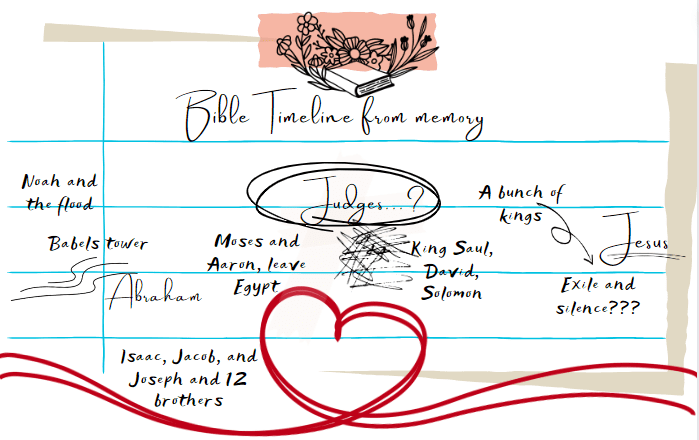 Bible Timeline from memory
Noah and
the flood
Babels tower
Abraham
Isaac, Jacob, and
Joseph and 12
brothers
Moses and
Aaron, leave
Egypt
Judges...?
King Saul,
David,
Solomon
A bunch of
kings
Exile and
silence???
Jesus